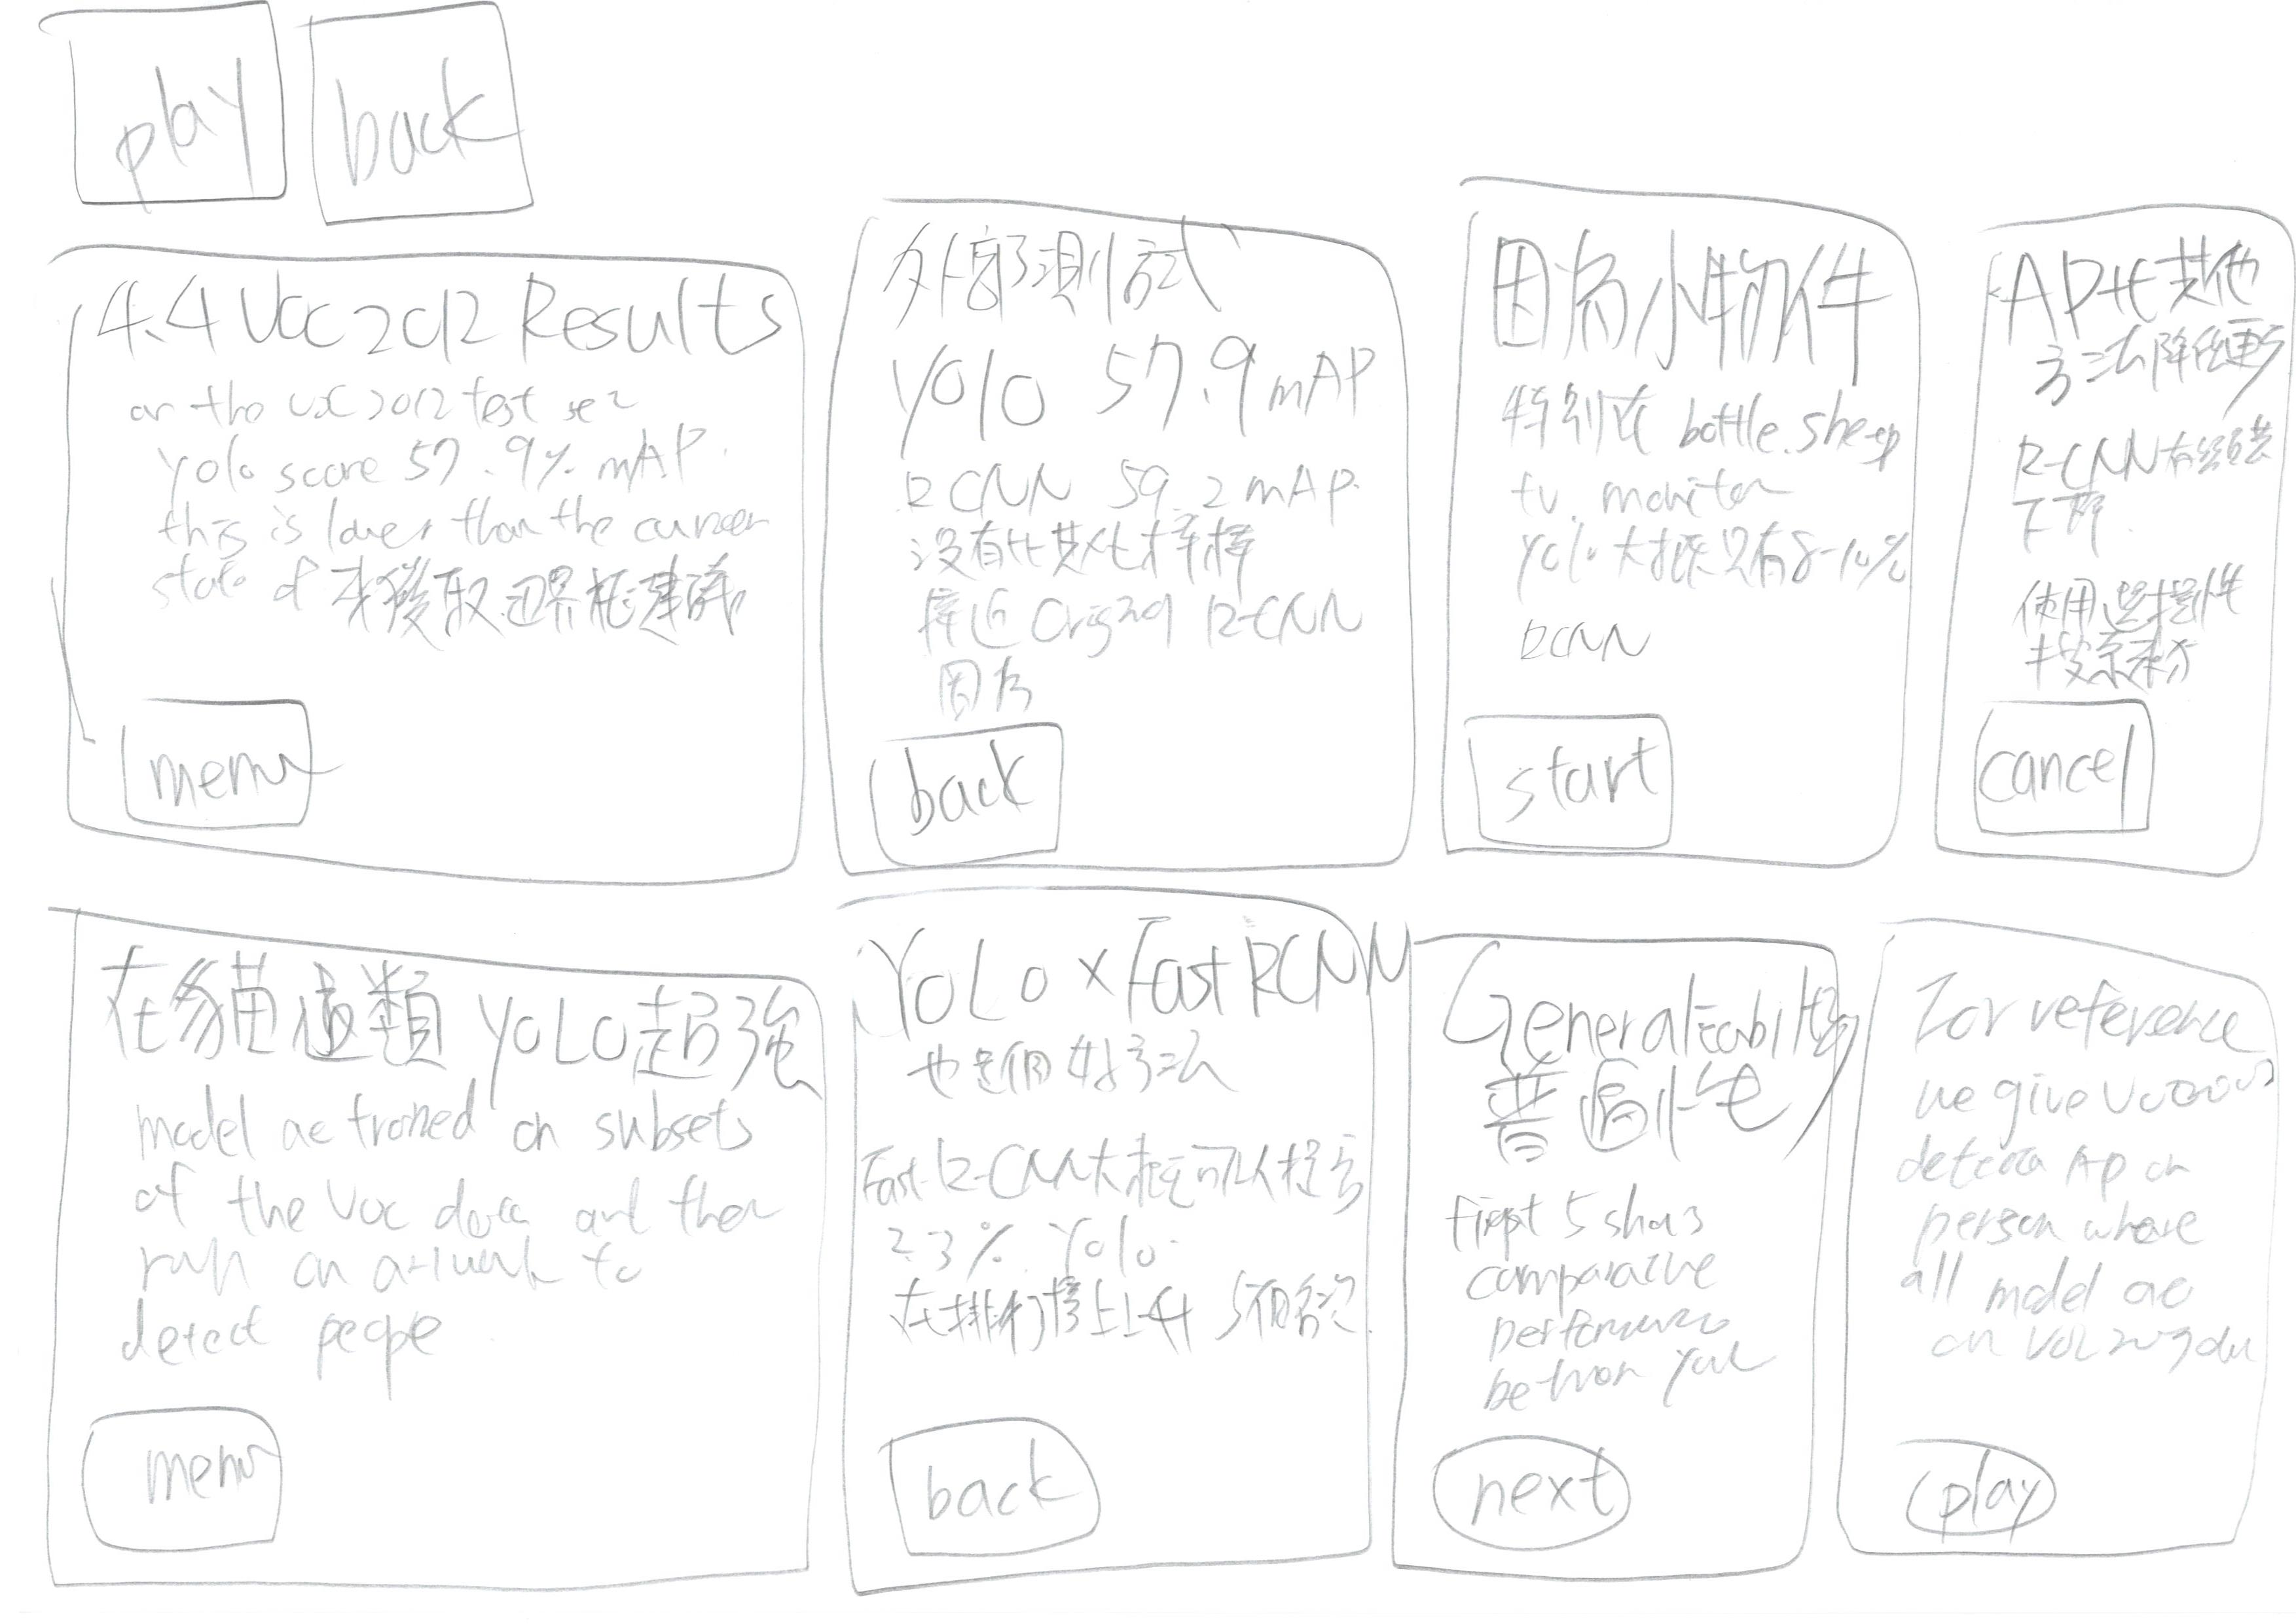 play
back
4.4 Voc 2012 Results
on the voc 2012 test set
yolo score 57.9% mAP.
this is lower than the current
state of 未獲取邊界框建議
menu
外部測試
Yolo 57.9 mAP
R CNN 59.2 mAP.
沒有比其他
接近 Original R-CNN
因為
back
因為小物件
特別在 bottle. sheep
tv. monitor
yolo 大概只有8-10%
RCNN
start
AP比其他
方法降低更多
R-CNN
下降
使用選擇性
搜索
cancel
在貓這類 YOLO超強
model are trained on subsets
of the Voc data and then
run on artwork to
detect people
menu
YOLO x Fast RCNN
也是個好方法
Fast-R-CNN大概可以提高
2.3% Yolo.
在排行榜上上升 5個名次
back
Generalizability
普遍性
First 5 shows
comparative
performance
between
next
For reference
we give Voc2007
detection AP on
person where
all model are
on Voc 2007 data
play